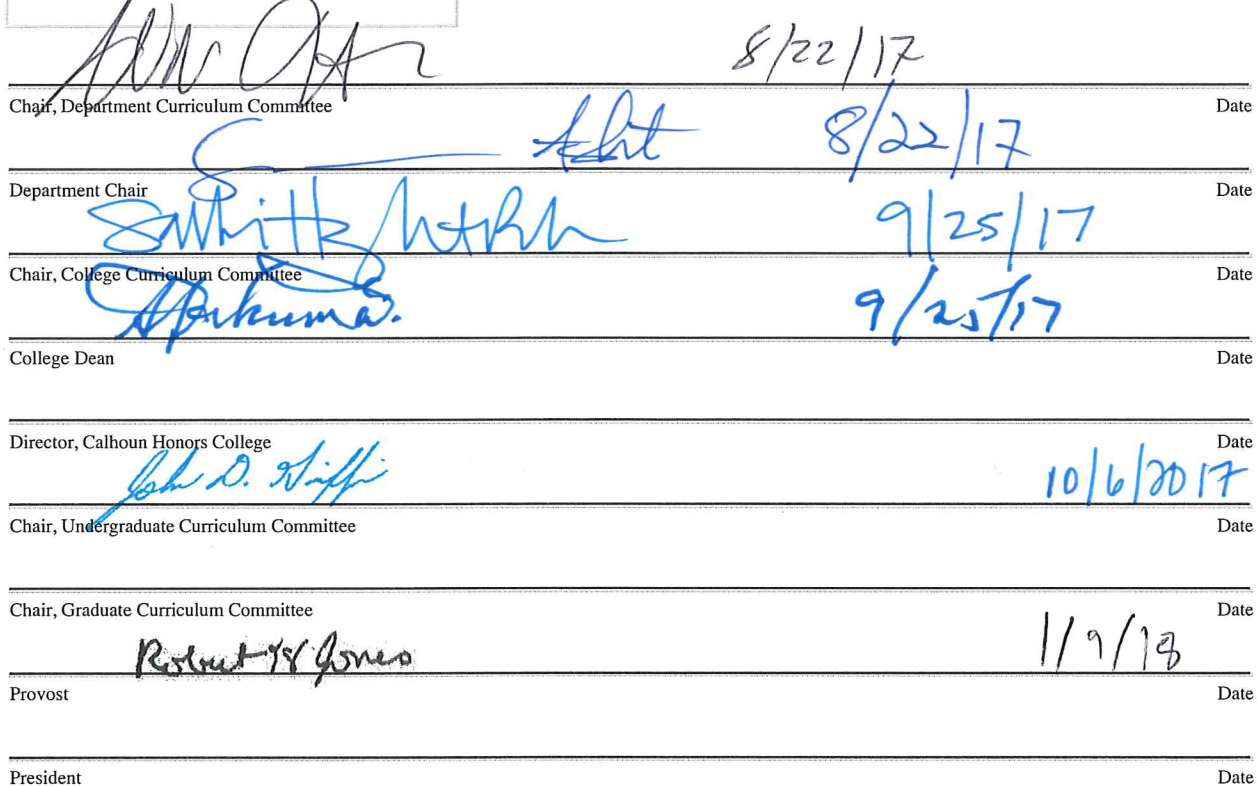 8/22/17
Chair, Department Curriculum Committee Date
8/22/17
Department Chair Date
9/25/17
Chair, College Curriculum Committee Date
9/25/17
College Dean Date
Director, Calhoun Honors College Date
John D. Griffin 10/6/2017
Chair, Undergraduate Curriculum Committee Date
Chair, Graduate Curriculum Committee Date
Robert H Jones 1/9/18
Provost Date
President Date